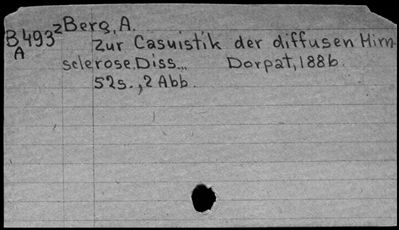 B493² Berg, A.
A Zur Casuistik der diffusen Hirn-
sclerose. Diss... Dorpat, 1886.
52s., 2 Abb.